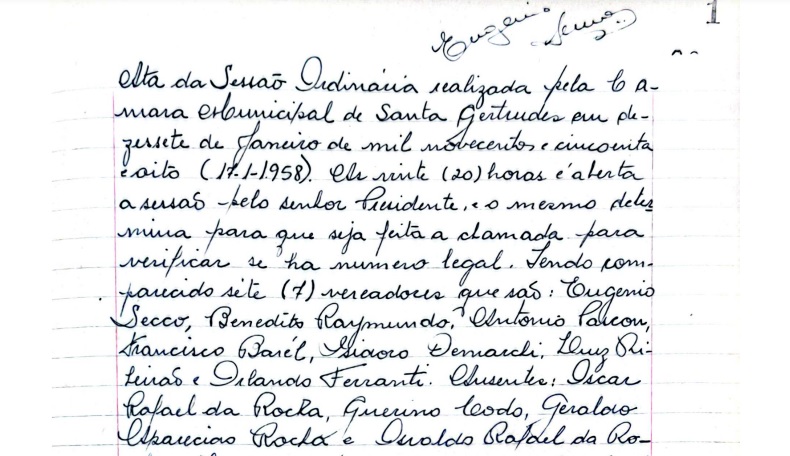 1
Eugenio Secco
Ata da Sessão Ordinária realizada pela Ca-
mara Municipal de Santa Gertrudes em de-
zessete de Janeiro de mil novecentos e cincoenta
e oito (17-1-1958). Às vinte (20) horas é aberta
a sessão pelo senhor Presidente, e o mesmo deter
mina para que seja feita a chamada para
verificar se ha numero legal. Tendo com-
parecido sete (7) vereadores que são: Eugenio
Secco, Benedito Raymundo, Antonio Pascon,
Francisco Barél, Isidoro Demarchi, Luiz Ri-
beirão e Orlando Ferranti. Ausentes: Oscar
Rafael da Rocha, Guerino Codo, Geraldo
Aparecido Rocha e Osvaldo Rafael da Ro-